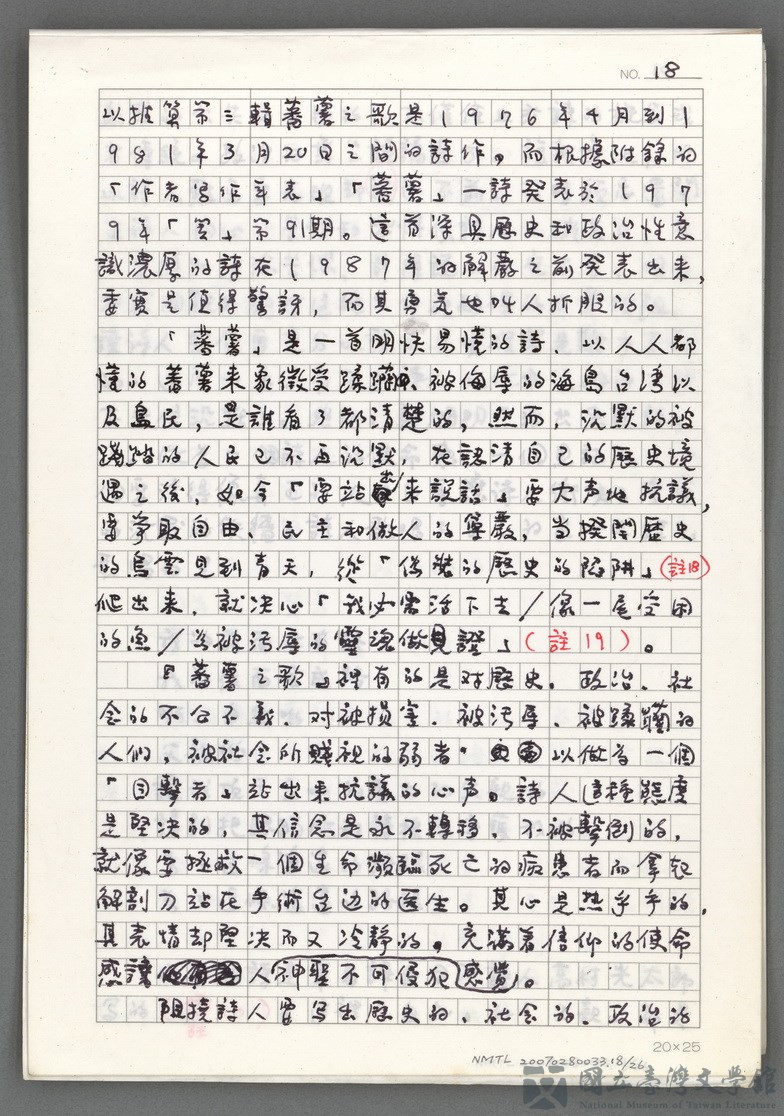 NO. 18
以推算第三輯蕃薯之歌是1976年4月到1
981年3月20日之間的詩作。而根據附錄的
「作者寫作年表」「蕃薯」一詩発表於197
9年「笠」第91期。這首深具歷史和政治性意
識濃厚的詩在1987年的解嚴之前発表出来，
委實是值得驚訝，而其勇気也叫人折服的。
「蕃薯」是一首明快易懂的詩．以人人都
懂的蕃薯来象徴受蹂躪、被侮辱的海島台湾以
及島民，是誰看了都清楚的，然而，沉默的被
蹂躪的人民已不再沉默，在認清自己的歷史境
遇之後，如今「要站出来說話」要大声地抗議，
要爭取自由、民主和做人的尊嚴，当撥開歷史
的烏雲見到青天，從「偽裝的歷史的陷阱」（註18）
爬出来，就決心「我必需活下去／像一尾受困
的魚／為被污辱的靈魂做見證」（註19）。
『蕃薯之歌』裡有的是对歷史．政治．社
会的不公不義．对被損害．被污辱．被蹂躪的
人們，被社会所賤視的弱者．以做為一個
「目擊者」站出来抗議的心声。詩人這種態度
是堅決的，其信念是永不轉移，不被擊倒的，
就像要拯救一個生命瀕臨死亡的病患者而拿起
解剖刀站在手術台边的医生。其心是热乎乎的，
其表情却堅決而又冷靜的。充満着信仰的使命
感讓人神聖不可侵犯感覺。
阻撓詩人要写出歷史的、社会的、政治的
20×25
NMTL 20070280033.18/26
國立臺灣文學館
National Museum of Taiwan Literature